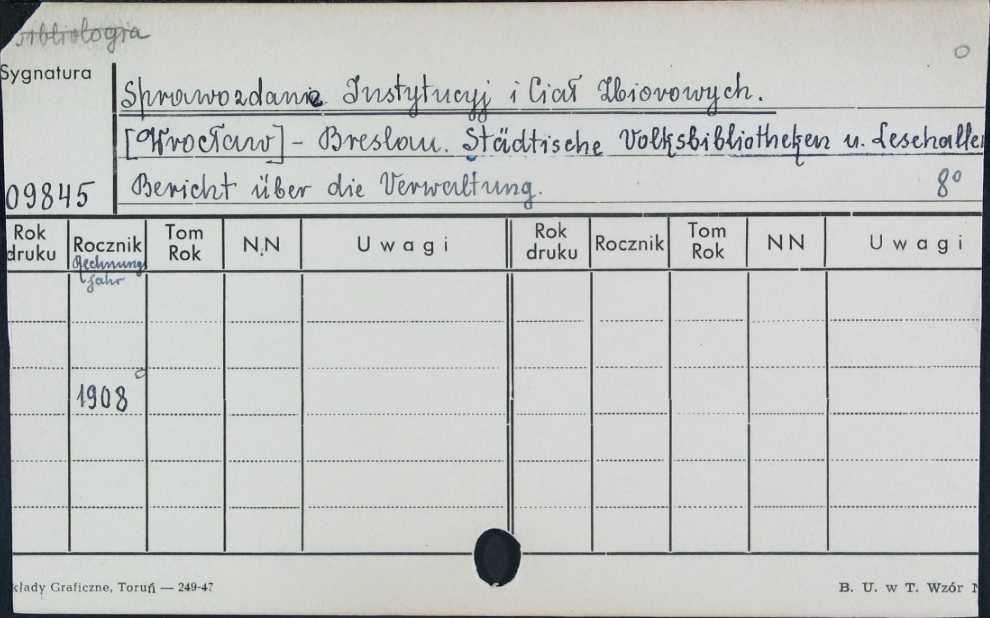 Bibliologia
Sygnatura
Sprawozdania Instytucyj i Ciał Zbiorowych.
[Wrocław] - Breslau. Städtische Volksbibliotheken u. Lesehallen
09845 Bericht über die Verwaltung. 8°
Rok druku Rocznik Tom Rok N.N Uwagi Rok druku Rocznik Tom Rok NN Uwagi
Rechnungs
jahr
1908
kłady Graficzne, Toruń — 249-47 B. U. w T. Wzór N